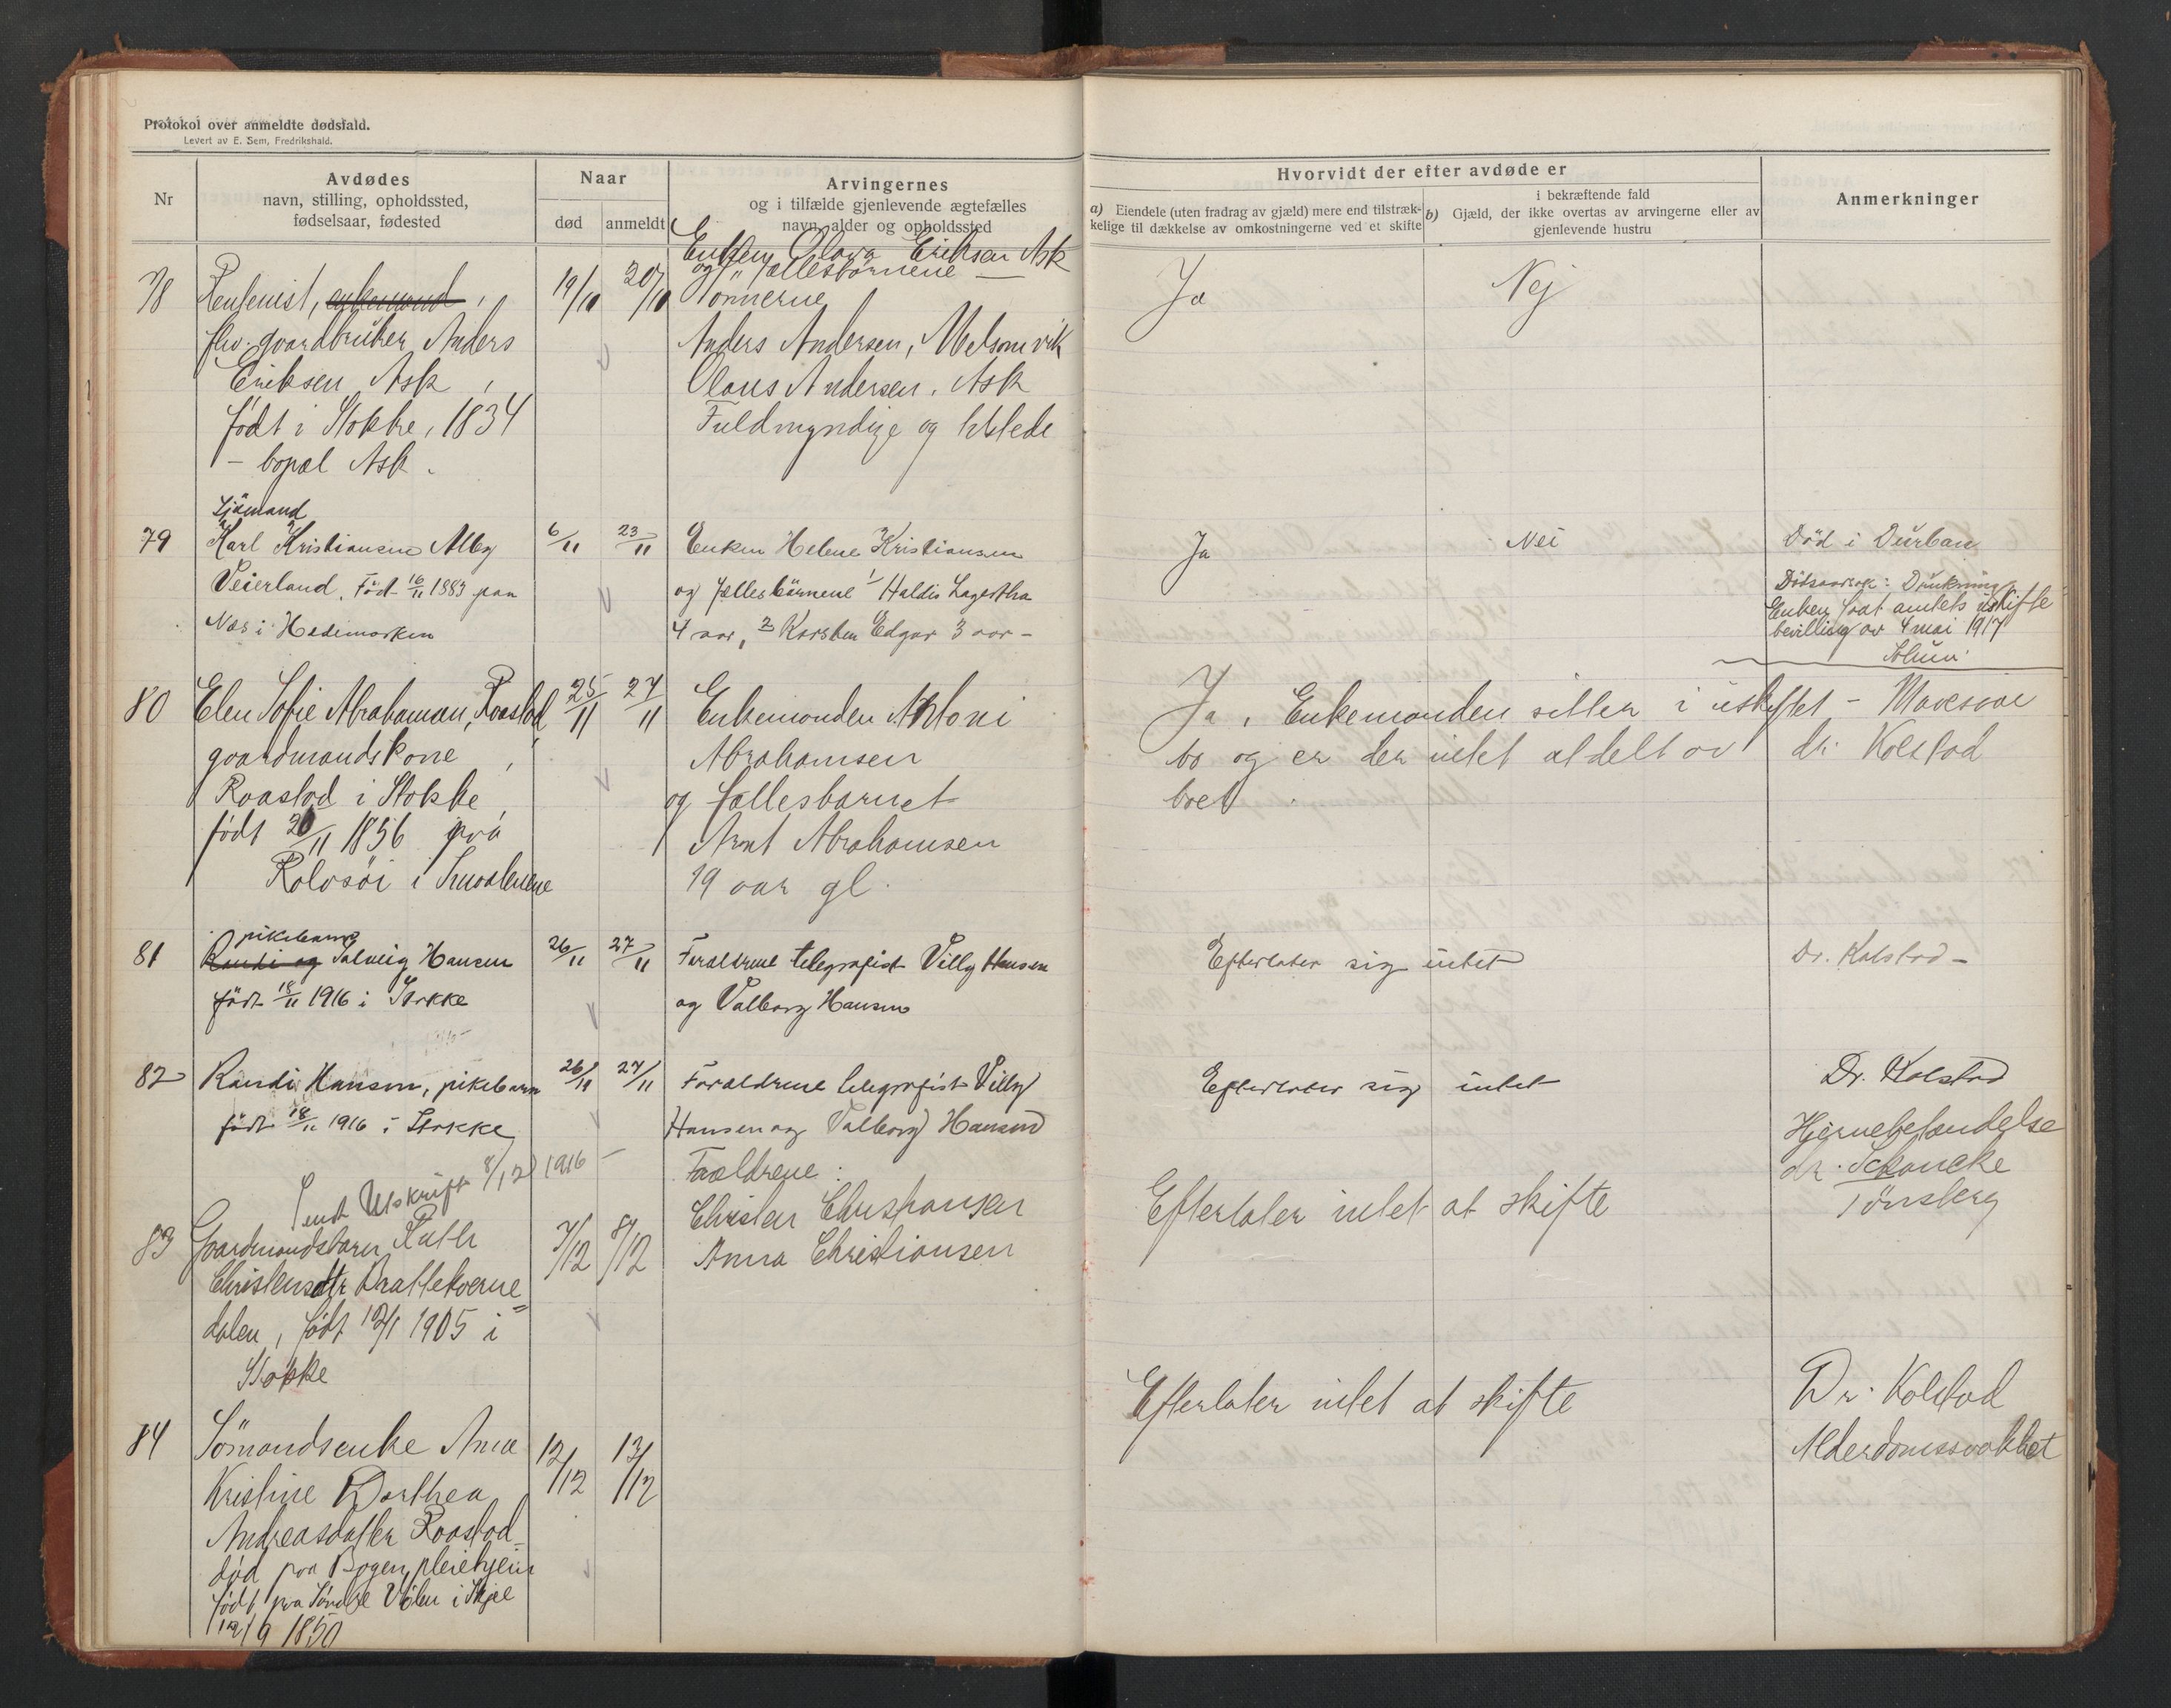 Protokol over anmeldte dødsfald.
Levert av E. Sem, Fredrikshald.
Nr
Avdødes
navn, stilling, opholdssted,
fødselsaar, fødested
Naar
død
anmeldt
Arvingernes
og i tilfælde gjenlevende ægtefælles
navn, alder og opholdssted
Hvorvidt der efter avdøde er
a) Eiendele (uten fradrag av gjæld) mere end tilstræk-
kelige til dækkelse av omkostningerne ved et skifte
i bekræftende fald
b) Gjæld, der ikke overtas av arvingerne eller av
gjenlevende hustru
Anmerkninger
78
Rentenist, enkemand,
fhv. gaardbruker Anders
Eriksen Ask,
født i Stokke, 1834
- bopæl Ask.
19/10
20/10
Enken Olava Eriksen Ask
og fællesbørnene
Sønnerne
Anders Andersen, Melsomvik
Olaus Andersen, Ask
Fuldmyndige og tilstede
Ja
Nej
79
Sjömand
Karl Kristiansen Alby
Veierland, Född 16/11 1883 paa
Næs i Hedemarken
6/11
23/11
Enken Helene Kristiansen
og fællesbörnene 1/ Haldis Lagertha
4 aar, 2 Karsten Edgar 3 aar -
Ja
Nei
Död i Durban
Dödsaarsak: Drukning
Enken faat amtets uskifte
bevilling av 4 mai 1917
80
Elen Sofie Abrahamsen, Raastad,
gaardmandskone,
Raastad i Stokke,
født 20/11 1856 paa
Rolvsöi i Smaalenene
25/11
27/11
Enkemanden Antoni
Abrahamsen
og fællesbarnet
Arnt Abrahamsen
19 aar gl.
Ja. Enkemanden sitter i uskiftet - Mavesaar
bo og er der intet utdelt av dr. Kolstad
boet.
81
pikebarn
Randi og Solveig Hansen
född 18/11 1916 i Stokke
26/11
27/11
Forældrene telegrafist Villy Hansen
og Valborg Hansen
Efterlater sig intet
Dr. Kolstad -
82
Randi Hansen, pikebarn
född 18/11 1916 i Stokke
26/11
27/11
Forældrene telegrafist Villy
Hansen og Valborg Hansen
Efterlater sig intet
Dr. Kolstad
Sendt Utskrift 8/12 1916 -
83
Gaardmandsbarn Ruth
Christensdtr Brattekverne=
dalen, født 12/1 1905 i
Stokke
7/12
8/12
Foældrene:
Christen Christiansen
Anna Christiansen
Efterlater intet at skifte
Hjernebetændelse
dr. Schancke
Tönsberg
84
Sömandsenke Anna
Kristine Dorthea
Andreasdatter Raastad
död paa Bogen pleiehjem
født paa Søndre Vølen i Skjee
12/9 1850
12/12
13/12
Efterlater intet at skifte
Dr. Kolstad
Alderdomssvakhet